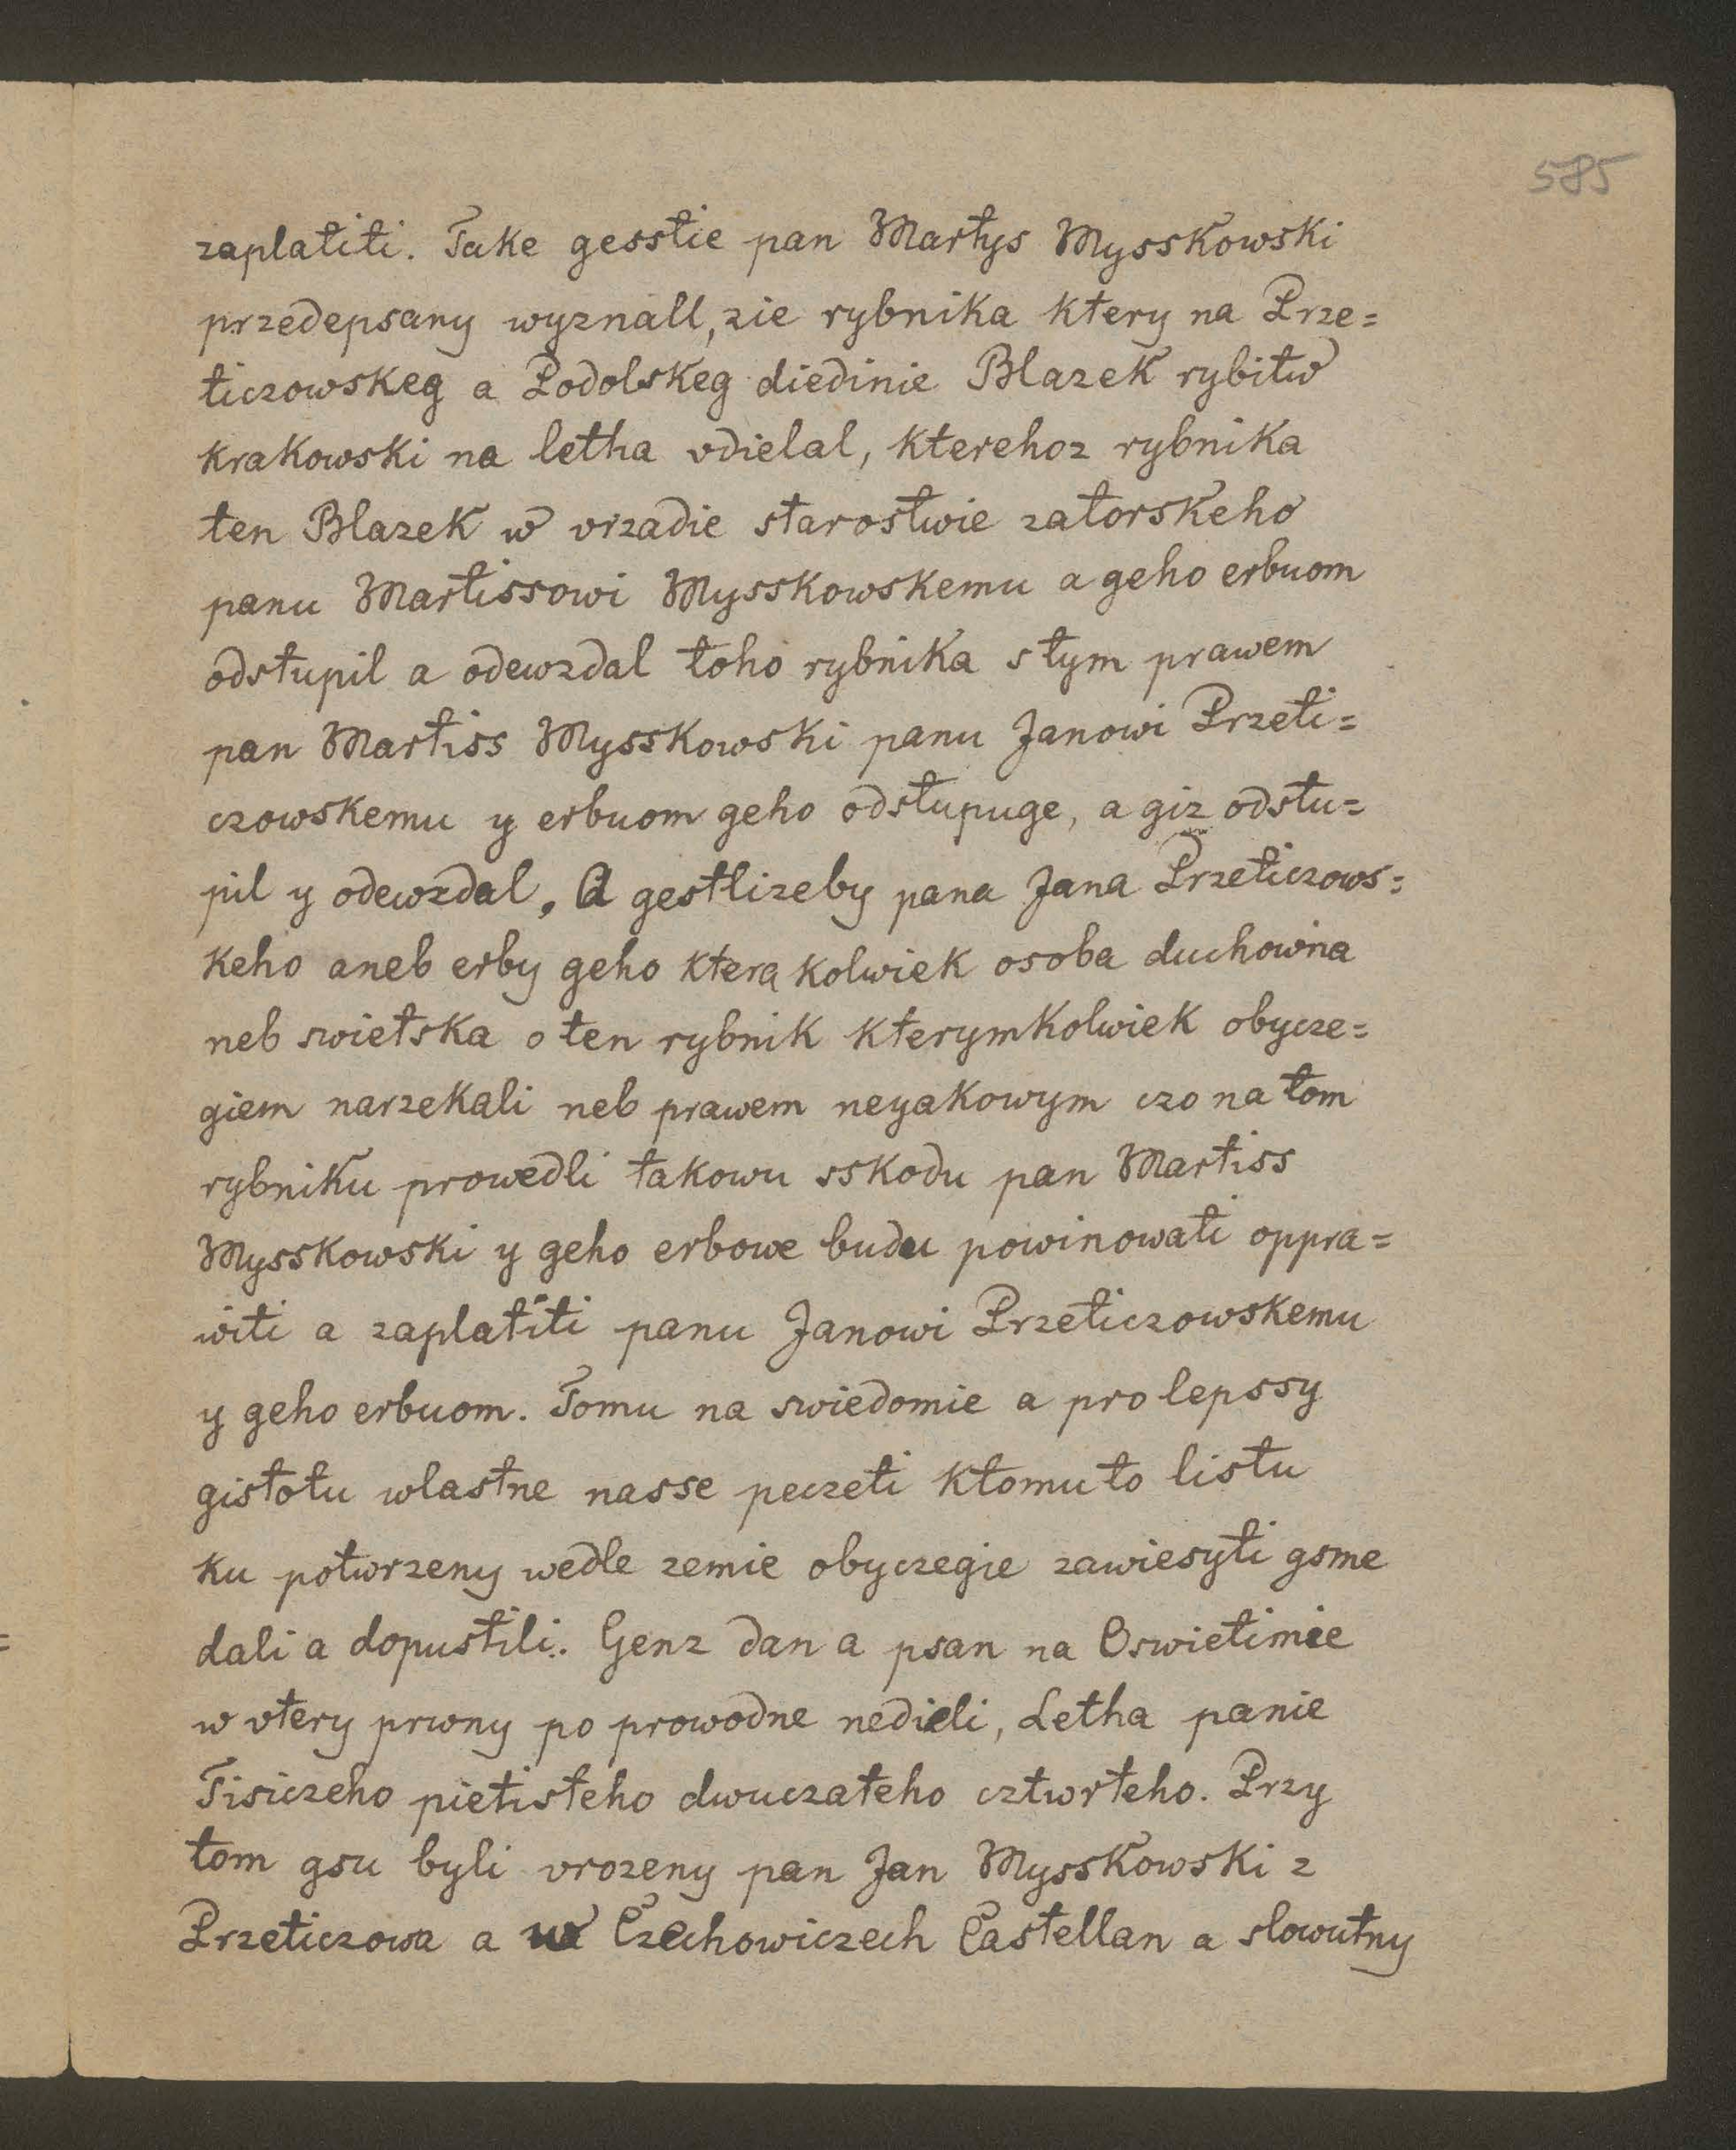 585
zaplatiti. Take gesstie pan Martys Mysskowski
przedepsany wyznall, zie rybnika ktery na Prze=
ticzowskeg a Podolskeg diedinie Blazek rybitw
krakowski na letha vdielal, kterehoz rybnika
ten Blazek w vrzadie starostwie zatorskeho
panu Martissowi Mysskowskemu a geho erbuom
odstupil a odewzdal toho rybnika s tym prawem
pan Martiss Mysskowski panu Janowi Przeti=
czowskemu y erbuom geho odstupuge, a giz odstu=
pil y odewzdal, A gestlizeby pana Jana Przeticzows=
keho aneb erby geho ktera kolwiek osoba duchowna
neb swietska o ten rybnik kterymkolwiek obycze=
giem narzekali neb prawem neyakowym czo na tom
rybniku prowedli takowu sskodu pan Martiss
Mysskowski y geho erbowe budu powinowati oppra=
witi a zaplatiti panu Janowi Przeticzowskemu
y geho erbuom. Tomu na swiedomie a pro lepssy
gistotu wlastne nasse peczeti ktomuto listu
ku potwrzeny wedle zemie obyczegie zawiesyti gsme
dali a dopustili. Genz dan a psan na Oswietimie
w vtery prwny po prowodne nedieli, Letha panie
Tisiczeho pietisteho dwuczateho cztwrteho. Przy
tom gsu byli vrozeny pan Jan Mysskowski z
Przeticzowa a w Czechowiczech Castellan a slowutny